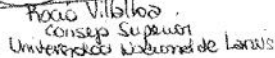 Rocio Villalba.
Consejo Superior
Universidad Nacional de Lanús